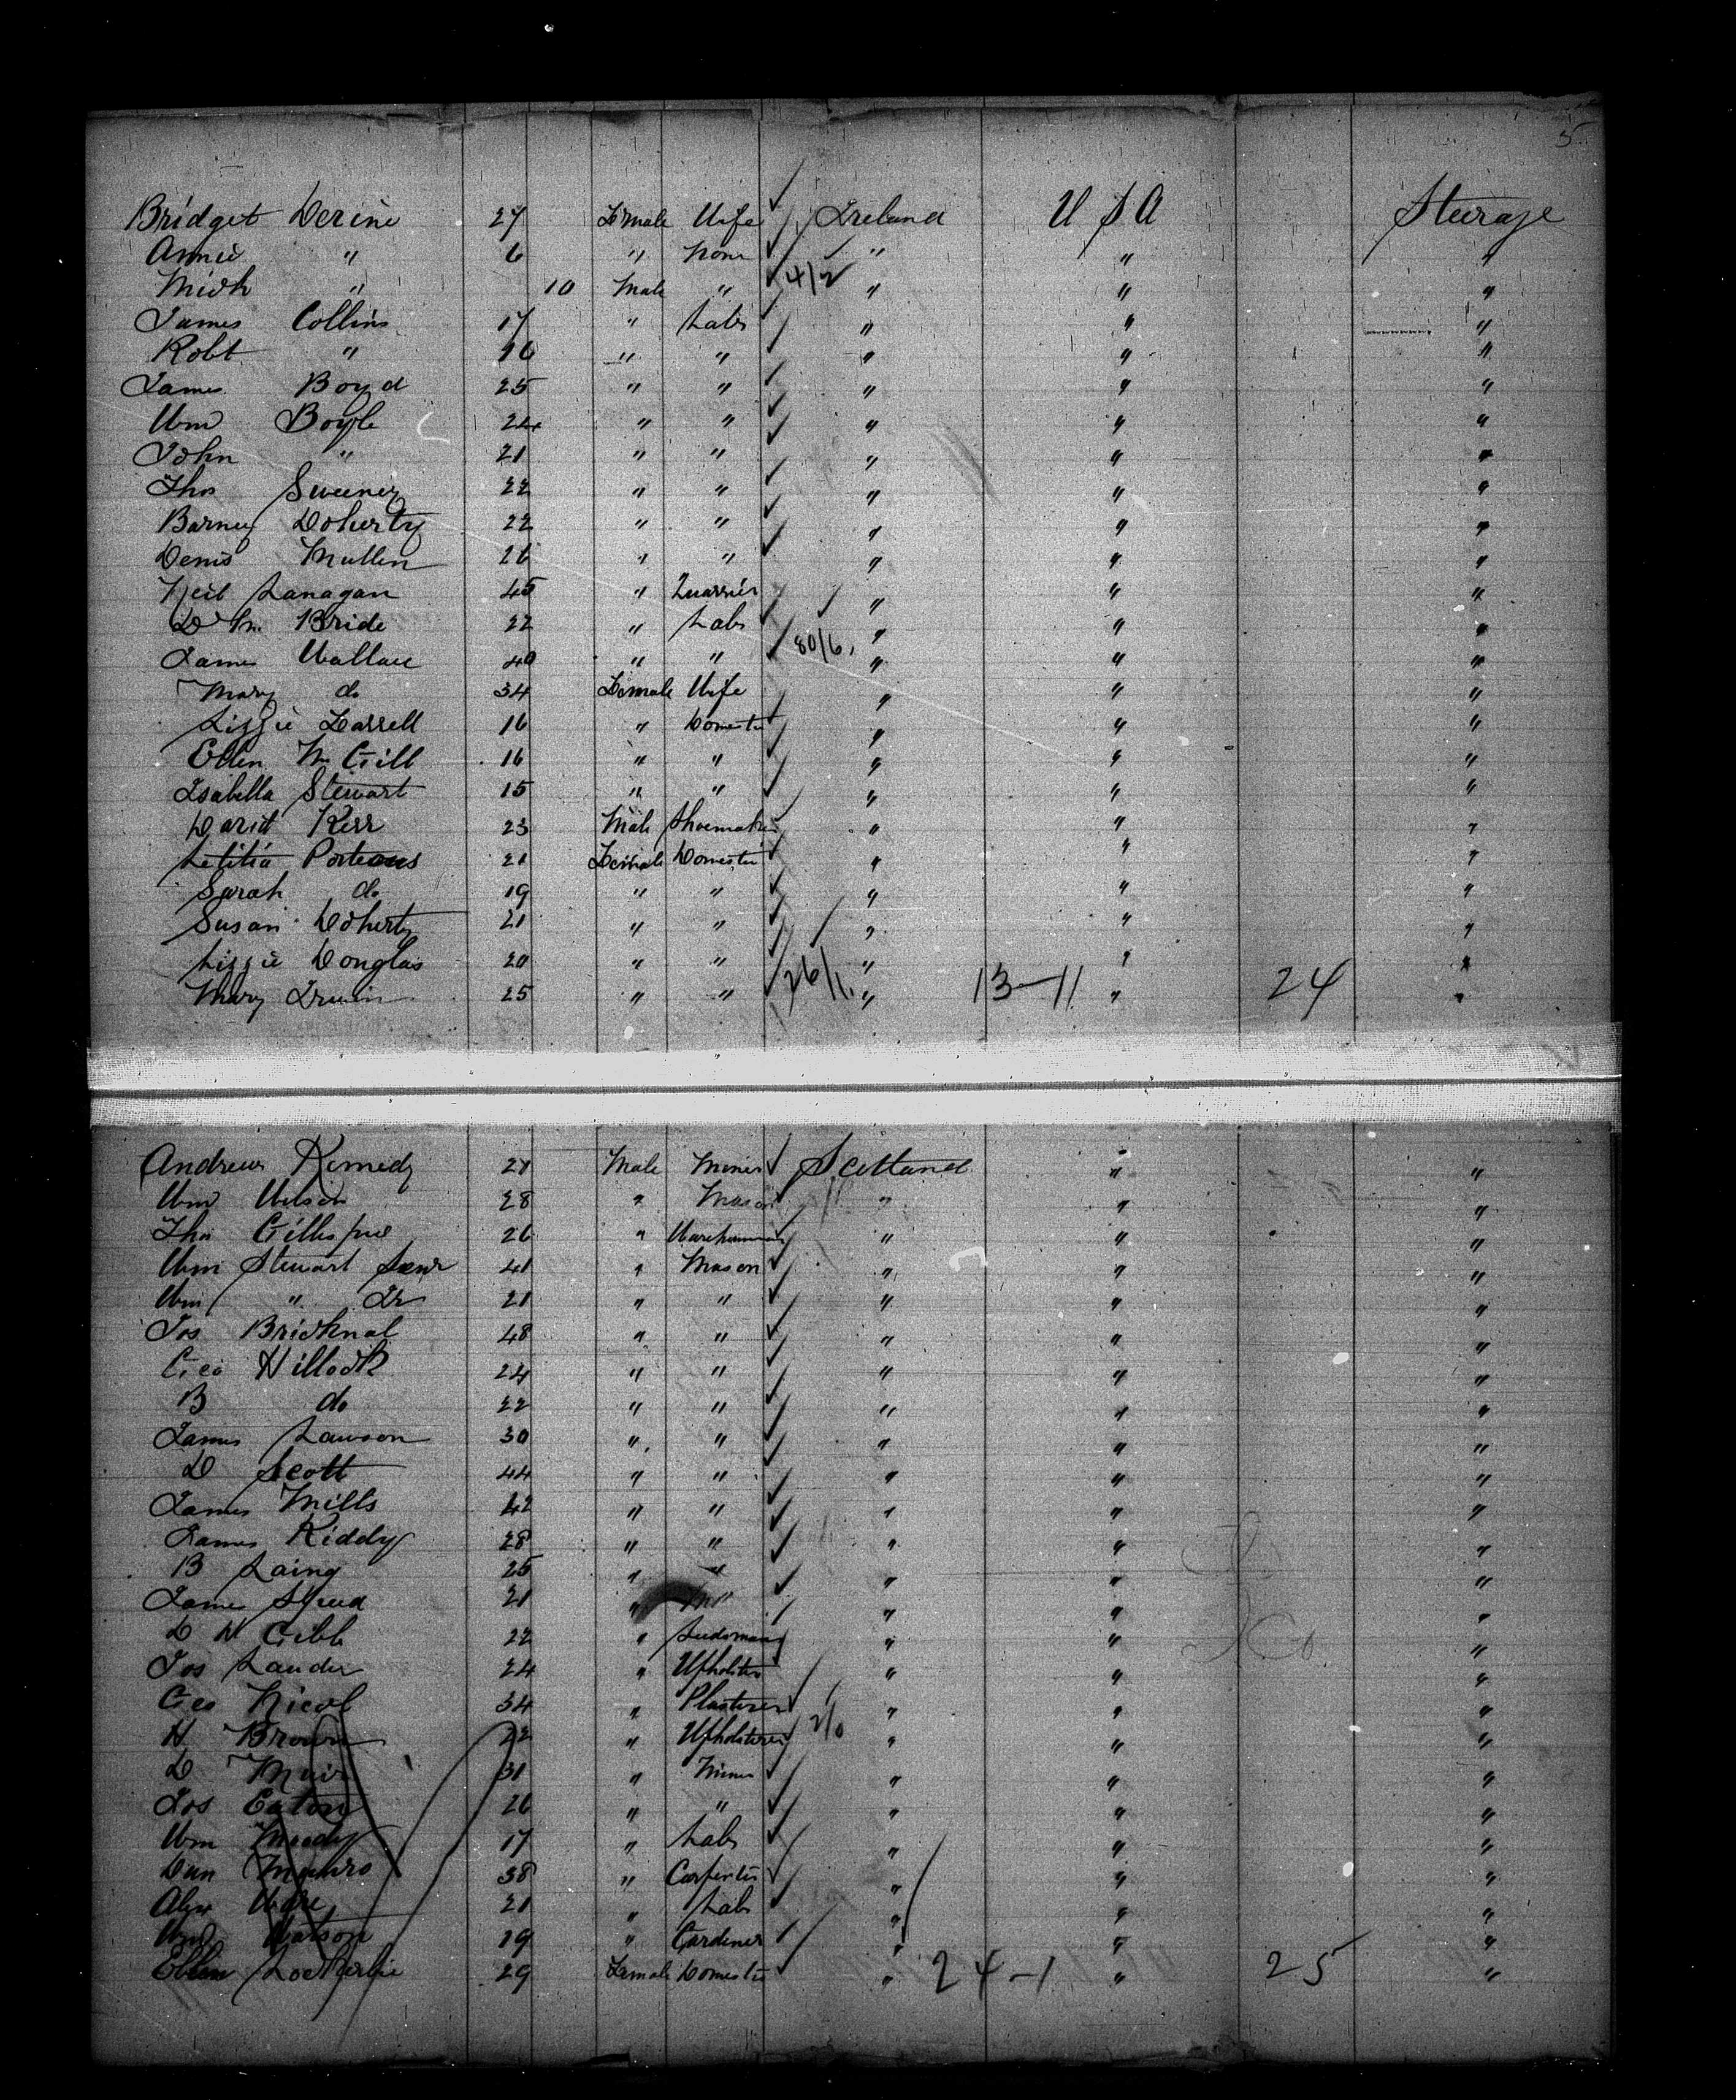 5
Bridget Derine 27 Female Wife Ireland U S A Steerage
Annie " 6 " None " " "
Mich " 10 Male " 4/2 " " "
James Collins 17 " Labr " " "
Robt " 16 " " " " "
James Boyd 25 " " " " "
Wm Boyle 24 " " " " "
John " 21 " " " " "
Thos Sweeney 22 " " " " "
Barney Doherty 22 " " " " "
Denis Mullen 26 " " " " "
Neil Lanagan 45 " Quarrier " " "
D Mc Bride 22 " Labr " " "
James Wallace 40 " " 80/6 " " "
Mary do 34 Female Wife " " "
Lizzie Farrell 16 " Domestic " " "
Ellen Mc Gill 16 " " " " "
Isabella Stewart 15 " " " " "
David Kerr 23 Male Shoemaker " " "
Letitia Porteous 21 Female Domestic " " "
Sarah do 19 " " " " "
Susan Doherty 21 " " " " "
Lizzie Douglas 20 " " " " "
Mary Irwin 25 " " 26/1 " 13-11 " 24 "
Andrew Kennedy 21 Male Miner Scotland " "
Wm Wilson 28 " Mason " " "
Thos Gillespie 26 " Warehouseman " " "
Wm Stewart Senr 41 " Mason " " "
Wm " Jr 21 " " " " "
Jos Bricknal 48 " " " " "
Geo Hillock 24 " " " " "
B do 22 " " " " "
James Lawson 30 " " " " "
D Scott 44 " " " " "
James Mills 42 " " " " "
James Kiddy 28 " " " " "
B Laing 25 " " " " "
James 21 " " " " "
D W Gibb 22 " Seedsman " " "
Jos Lauder 24 " Upholster " " "
Geo Nicol 34 " Plasterer " " "
H Brown 22 " Upholsterer 2/0 " " "
D Muir 31 " Miner " " "
Jos Eaton 26 " " " " "
Wm Moody 17 " Labr " " "
Dun Munro 38 " Carpenter " " "
Alex 21 " Labr " " "
Wm Watson 19 " Gardener " " "
Ellen Lockerbie 29 Female Domestic " 24-1 " 25 "